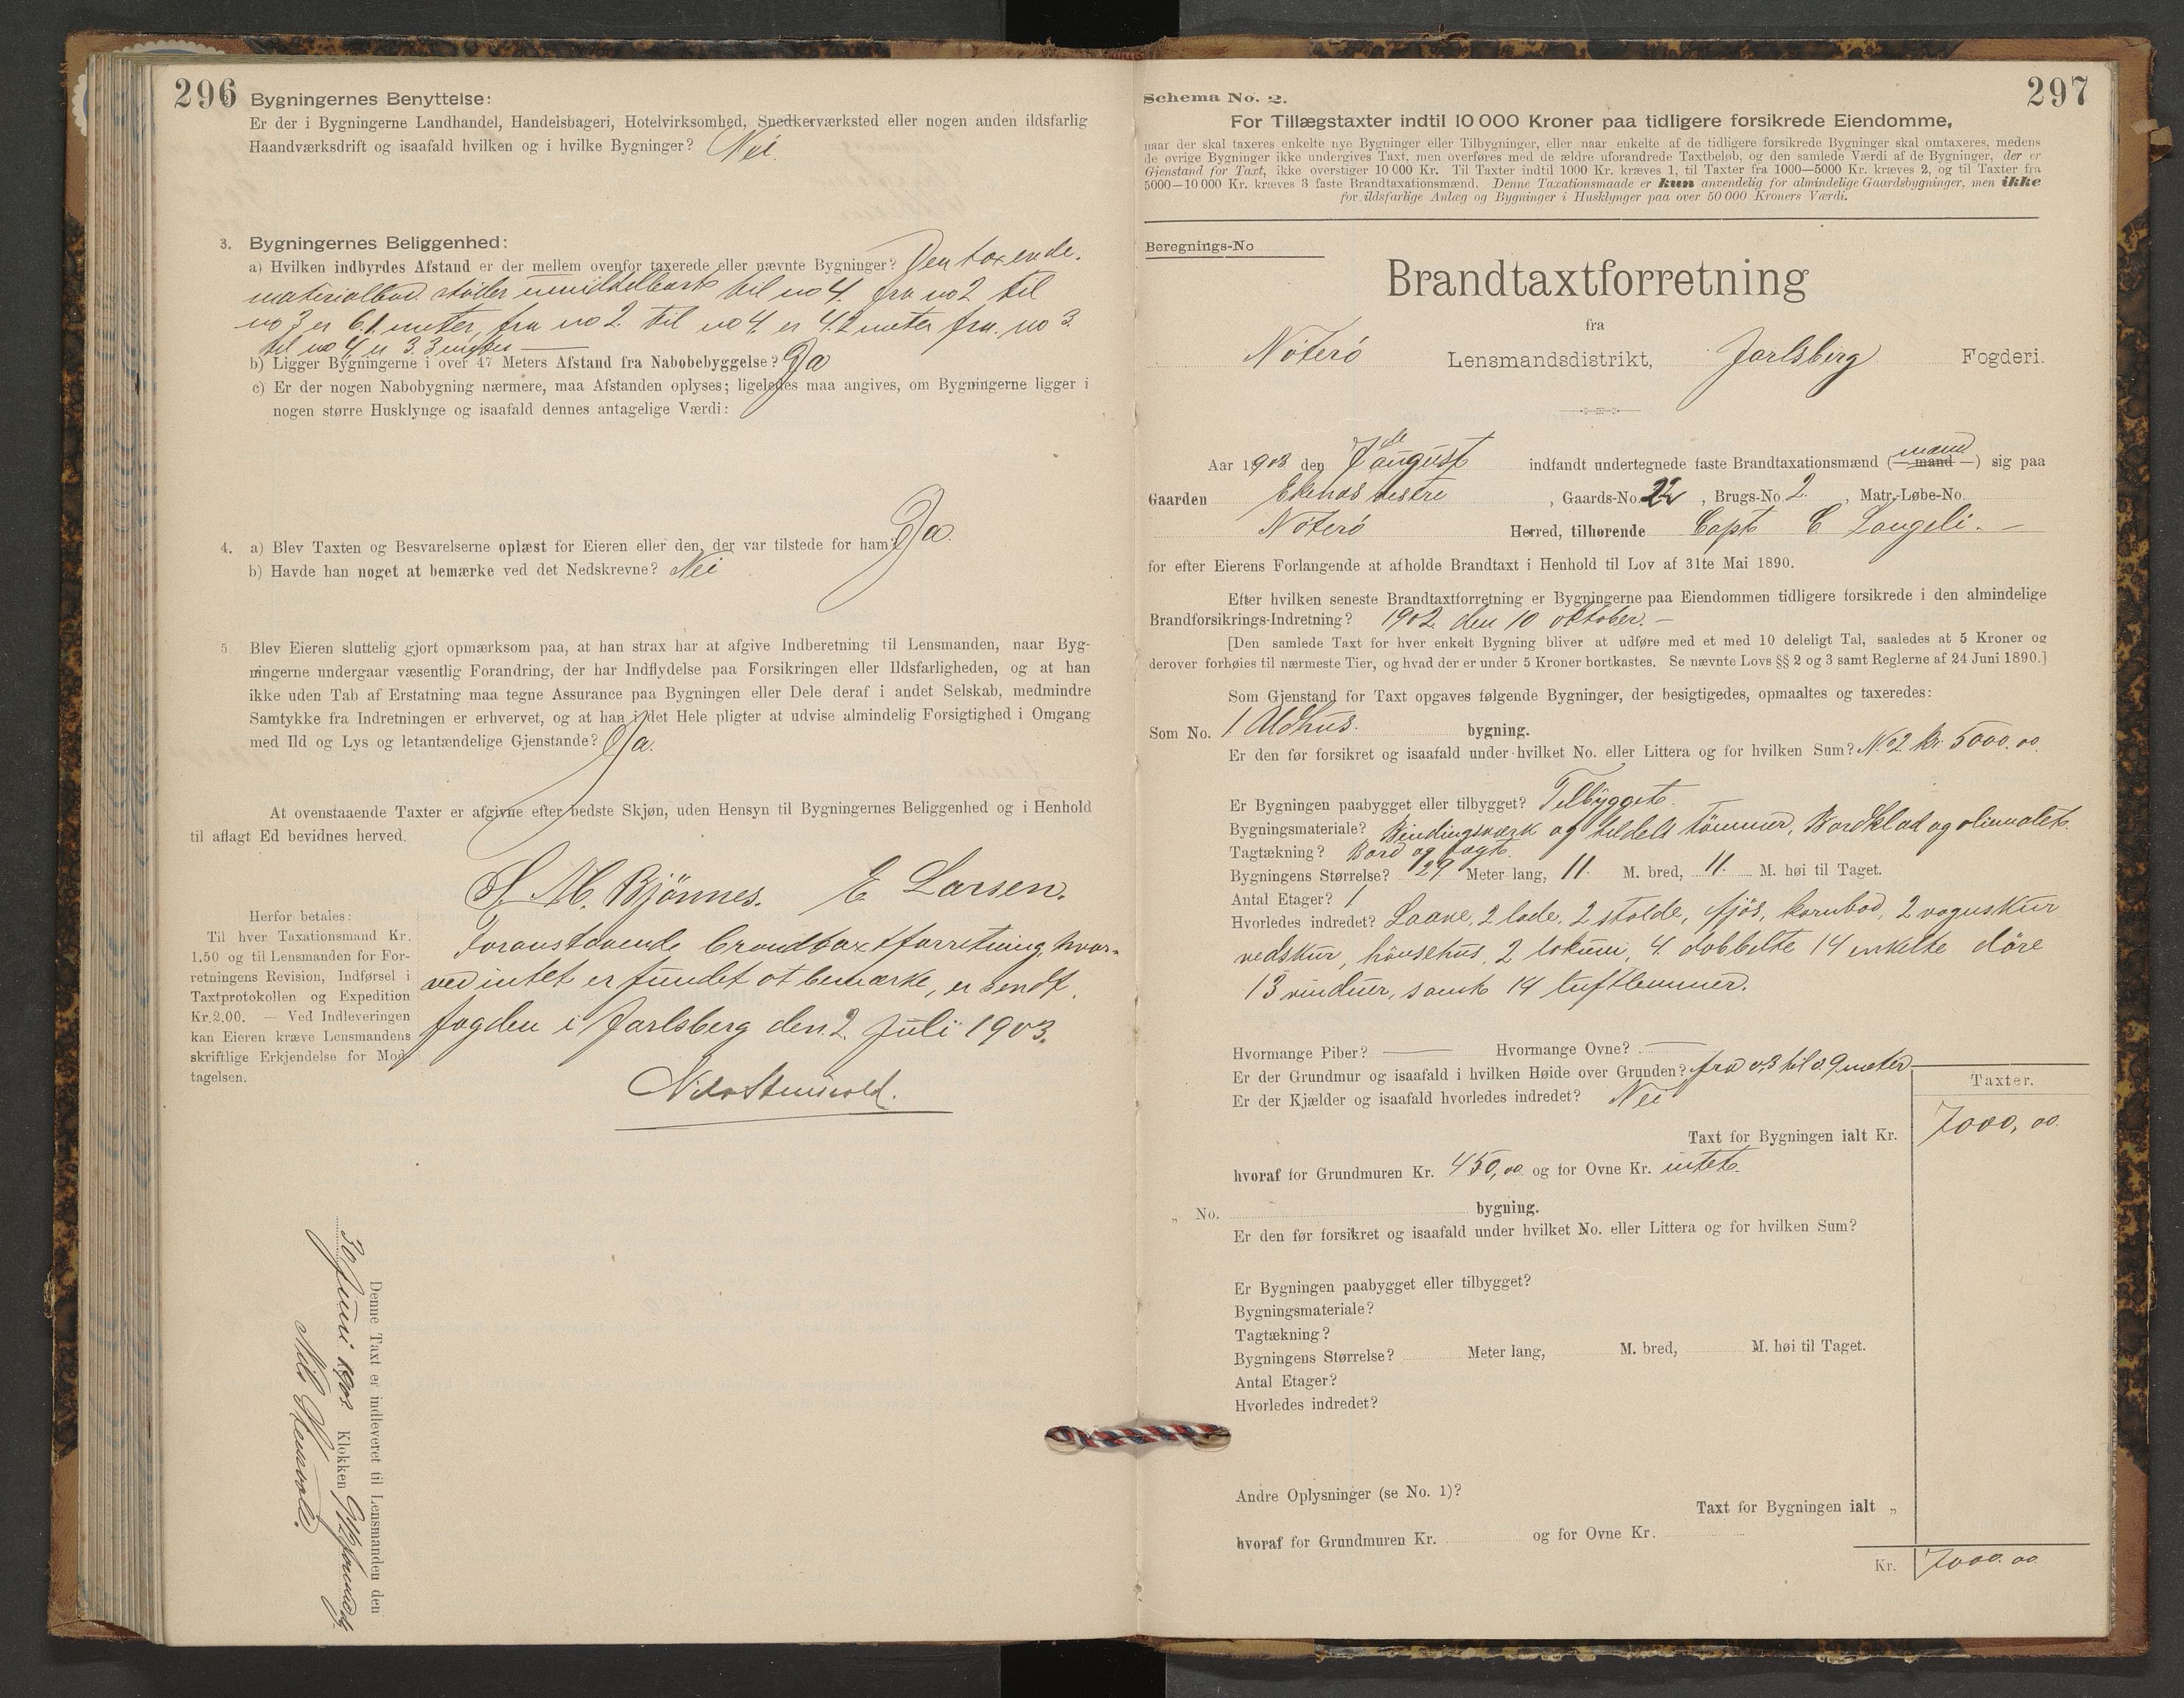 296
Bygningernes Benyttelse:
Er der i Bygningerne Landhandel, Handelsbageri, Hotelvirksomhed, Snedkerværksted eller nogen anden ildsfarlig
Haandværksdrift og isaafald hvilken og i hvilke Bygninger? Nei.
3. Bygningernes Beliggenhed:
a) Hvilken indbyrdes Afstand er der mellem ovenfor taxerede eller nævnte Bygninger? Den taxerede
materialbod støder umiddelbart til no 4. fra no 2 til
no 3 er 6.1 meter, fra no 2. til no 4 er 4.2 meter fra no 3
til no 4 er 3.3 meter
b) Ligger Bygningerne i over 47 Meters Afstand fra Nabobebyggelse? Ja
c) Er der nogen Nabobygning nærmere, maa Afstanden oplyses; ligeledes maa angives, om Bygningerne ligger i
nogen større Husklynge og isaafald dennes antagelige Værdi:
4. a) Blev Taxten og Besvarelserne oplæst for Eieren eller den, der var tilstede for ham? Ja.
b) Havde han noget at bemærke ved det Nedskrevne? Nei
5. Blev Eieren sluttelig gjort opmærksom paa, at han strax har at afgive Indberetning til Lensmanden, naar Byg-
ningerne undergaar væsentlig Forandring, der har Indflydelse paa Forsikringen eller Ildsfarligheden, og at han
ikke uden Tab af Erstatning maa tegne Assurance paa Bygningen eller Dele deraf i andet Selskab, medmindre
Samtykke fra Indretningen er erhvervet, og at han i det Hele pligter at udvise almindelig Forsigtighed i Omgang
med Ild og Lys og letantændelige Gjenstande? Ja.
At ovenstaaende Taxter er afgivne efter bedste Skjøn, uden Hensyn til Bygningernes Beliggenhed og i Henhold
til aflagt Ed bevidnes herved.
S. M. Bjönnes. E Larsen.
Herfor betales:
Til hver Taxationsmand Kr.
1.50 og til Lensmanden for For-
retningens Revision, Indførsel i
Taxtprotokollen og Expedition
Kr. 2.00. — Ved Indleveringen
kan Eieren kræve Lensmandens
skriftlige Erkjendelse for Mod-
tagelsen.
Foranstaaende brandtaxtforretning, hvor-
ved intet er fundet at bemærke, er sendt
fogden i Jarlsberg den 2. Juli 1903.
Nils Stensvold.
Denne Taxt er indleveret til Lensmanden den
30 Juni 1903. Klokken 9 1/2 formidg.
Nils Stensvold.
297
Schema No. 2.
For Tillægstaxter indtil 10 000 Kroner paa tidligere forsikrede Eiendomme,
naar der skal taxeres enkelte nye Bygninger eller Tilbygninger, eller naar enkelte af de tidligere forsikrede Bygninger skal omtaxeres, medens
de øvrige Bygninger ikke undergives Taxt, men overføres med de ældre uforandrede Taxtbeløb, og den samlede Værdi af de Bygninger, der er
Gjenstand for Taxt, ikke overstiger 10 000 Kr. Til Taxter indtil 1000 Kr. kræves 1, til Taxter fra 1000—5000 Kr. kræves 2, og til Taxter fra
5000—10 000 Kr. kræves 3 faste Brandtaxationsmænd. Denne Taxationsmaade er kun anvendelig for almindelige Gaardsbygninger, men ikke
for ildsfarlige Anlæg og Bygninger i Husklynger paa over 50 000 Kroners Værdi.
Beregnings-No
Brandtaxtforretning
fra
Nöterö Lensmandsdistrikt, Jarlsberg Fogderi.
Aar 1903 den 7de august indfandt undertegnede faste Brandtaxationsmænd (— mand —) mænd sig paa
Gaarden Ekenes vestre, Gaards-No. 22, Brugs-No. 2, Matr.-Løbe-No.
Nöterö Herred, tilhørende Capt C Langeli. —
for efter Eierens Forlangende at afholde Brandtaxt i Henhold til Lov af 31te Mai 1890.
Efter hvilken seneste Brandtaxtforretning er Bygningerne paa Eiendommen tidligere forsikrede i den almindelige
Brandforsikrings-Indretning? 1902 den 10 oktober. —
[Den samlede Taxt for hver enkelt Bygning bliver at udføre med et med 10 deleligt Tal, saaledes at 5 Kroner og
derover forhøies til nærmeste Tier, og hvad der er under 5 Kroner bortkastes. Se nævnte Lovs §§ 2 og 3 samt Reglerne af 24 Juni 1890.]
Som Gjenstand for Taxt opgaves følgende Bygninger, der besigtigedes, opmaaltes og taxeredes:
Som No. 1 Udhus. bygning.
Er den før forsikret og isaafald under hvilket No. eller Littera og for hvilken Sum? No 2 kr 5000.00
Er Bygningen paabygget eller tilbygget? Tilbygget.
Bygningsmateriale? Bindingsværk og tildels tömmer, Bordklæd og oliemalet.
Tagtækning? Bord og tegl.
Bygningens Størrelse? 29 Meter lang, 11. M. bred, 11. M. høi til Taget.
Antal Etager? 1
Hvorledes indredet? Laave, 2 lade, 2 stalde, fjös, kornbod, 2 vognskur
vedskur, hönsehus, 2 lokum, 4 dobbelte 14 enkelte döre
13 vinduer, samt 14 luftlemmer.
Hvormange Piber? — Hvormange Ovne? —
Er der Grundmur og isaafald i hvilken Høide over Grunden? fra 0,3 til 0.9 meter
Er der Kjælder og isaafald hvorledes indredet? Nei
Taxter.
Taxt for Bygningen ialt Kr. 7000,00.
hvoraf for Grundmuren Kr. 450,00 og for Ovne Kr. intet.
„ No. bygning.
Er den før forsikret og isaafald under hvilket No. eller Littera og for hvilken Sum?
Er Bygningen paabygget eller tilbygget?
Bygningsmateriale?
Tagtækning?
Bygningens Størrelse? Meter lang, M. bred, M. høi til Taget.
Antal Etager?
Hvorledes indredet?
Andre Oplysninger (se No. 1)?
Taxt for Bygningen ialt „
hvoraf for Grundmuren Kr. og for Ovne Kr.
Kr. 7000.00